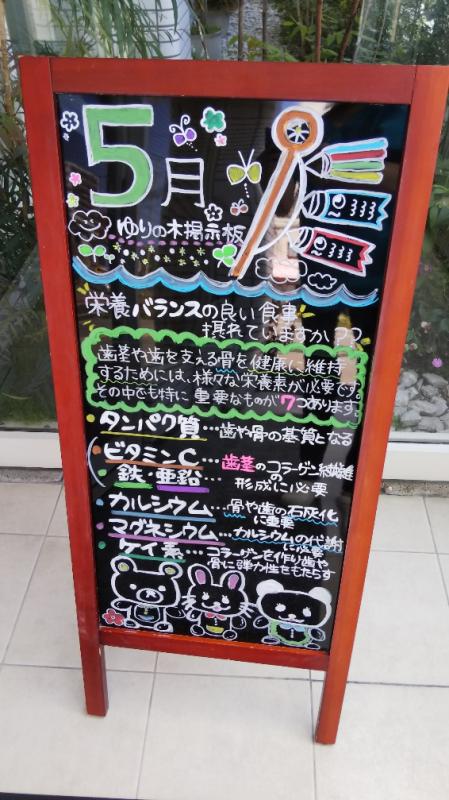 5月
ゆりの木掲示板
栄養バランスの良い食事
摂れていますか??
歯茎や歯を支える骨を健康に維持
するためには、様々な栄養素が必要です
その中でも特に重要なものが7つあります。
・タンパク質…歯や骨の基質となる
・ビタミンC…歯茎のコラーゲン繊維の
・鉄・亜鉛…形成に必要
・カルシウム…骨や歯の石灰化
に重要
・マグネシウム…カルシウムの代謝
に必要
・ケイ素…コラーゲンを作り歯や
骨に弾力性をもたらす